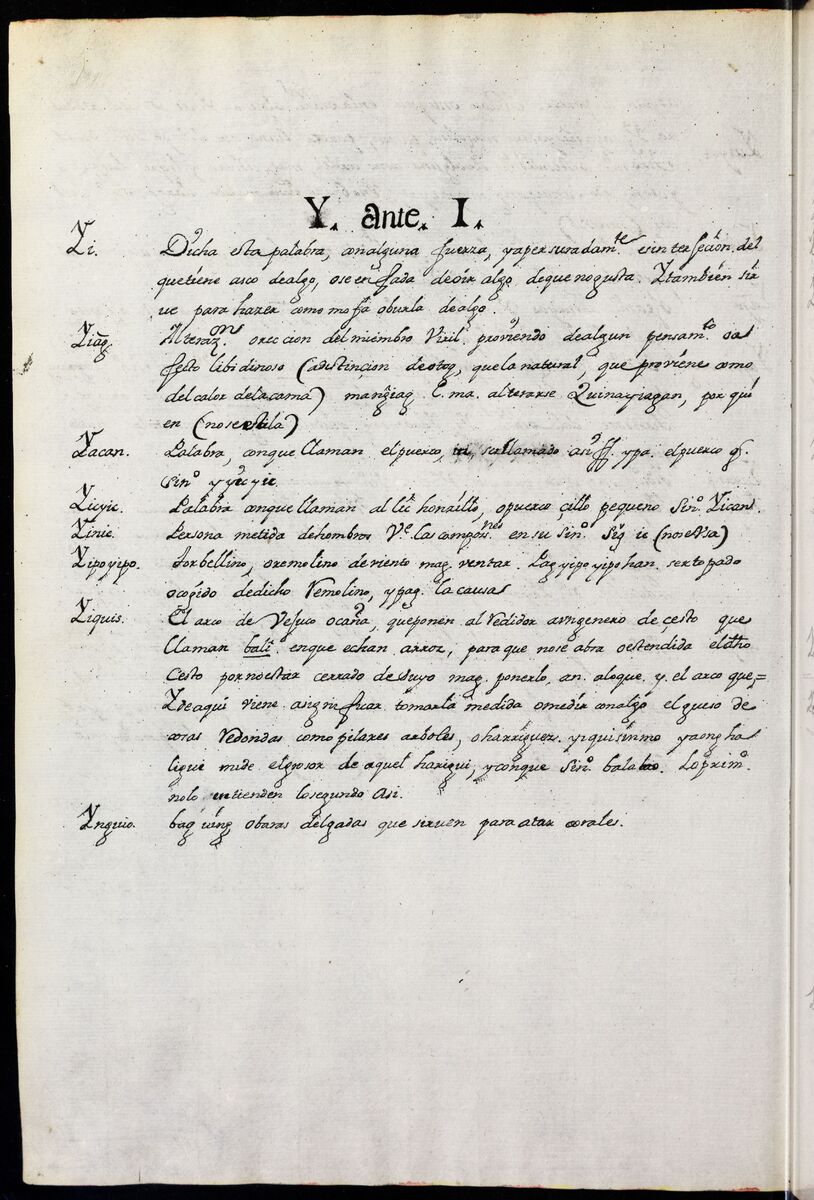 Y. ante. I.
Yi. Dicha esta palabra, con alguna fuerza, y apersuradamte. es interfecion. del
que tiene asco de algo, o se enffada de oir algo de que no gusta. Y tambien sir
ue para hazer como moffa o burla de algo.
Yiag. Alterazon. o reccion del miembro Viril. proviendo de algun pensamto. o a
fecto libidinoso (a distinçion de otag, que la natural, que proviene como
del calor de la cama) mangiag C. ma. alterarse Quinayiagan, por qui
en (no se estila)
Yacan. Palabra, con que llaman el puerco, ser llamado asi ff. ypa. el puerco q.
sino. y yicyic
Yicyic. Palabra con que llaman al lichoncillo, o puerco çillo pequeno Sino. Yican.
Yinic. Persona metida de hombros Ve. las compones. en su Sino. Siq ic (no se usa)
Yipoyipo. Torbellino, o remolino de viento mag. ventar. Pag yipo yipo han. ser topado
o cogido de dicho Remolino, y pag. la causa
Yiquis. El arco de Vejuco o caña, que ponen al Rededor a un genero de çesto que
llaman bali. en que echan arroz, para que no se abra o estendida el dho
Cesto por no estar cerrado de suyo mag. ponerlo, an. a lo que, y. el arco que=
Y de aqui viene a significar tomar la medida o medir con algo el gueso de
cosas Redondas como pilares arboles, o harriguez. yiquisinmo yaong ha
ligui mide el grosor de aquel harigui, y conque Sino. balabao. Lo primo.
no lo entienden lo segundo Asi.
Ynguio. bag uing, o baras delgadas que siruen para atar corales.